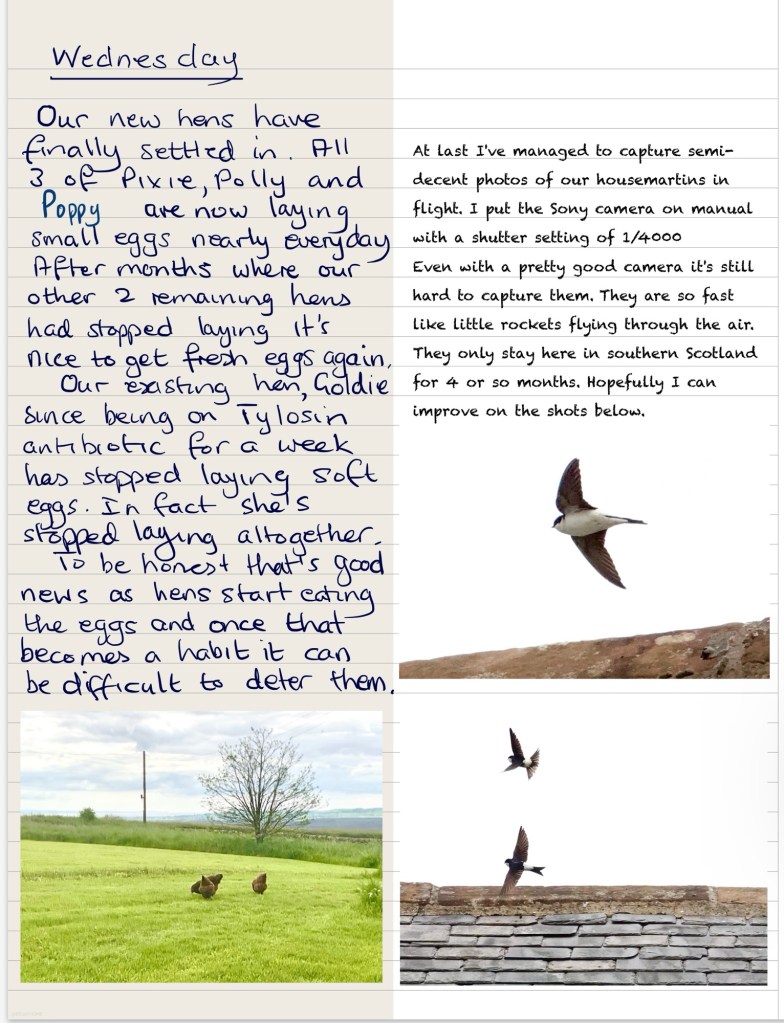 Wednesday
Our new hens have
finally settled in. All
3 of Pixie, Polly and
Poppy are now laying
small eggs nearly everyday
After months where our
other 2 remaining hens
had stopped laying it's
nice to get fresh eggs again.
Our exasting hen, Goldie
since being on Tylosin
antibiotic for a week
has stopped laying soft
eggs. In fact she's
stopped laying altogether.
To be honest that's good
news as hens start eating
the eggs and once that
becomes a habit it can
be difficult to deter them.
At last I've managed to capture semi-
decent photos of our housemartins in
flight. I put the Sony camera on manual
with a shutter setting of 1/4000
Even with a pretty good camera it's still
hard to capture them. They are so fast
like little rockets flying through the air.
They only stay here in southern Scotland
for 4 or so months. Hopefully I can
improve on the shots below.